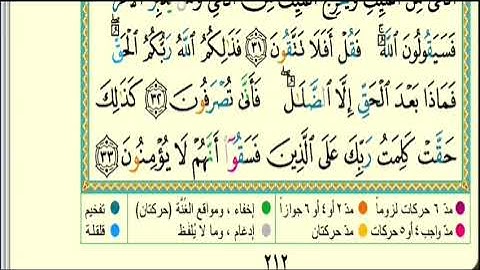 فَسَيَقُولُونَ ٱللَّهُ ۚ فَقُلْ أَفَلَا تَتَّقُونَ ٣١ فَذَٰلِكُمُ ٱللَّهُ رَبُّكُمُ ٱلْحَقُّ ۖ
فَمَاذَا بَعْدَ ٱلْحَقِّ إِلَّا ٱلضَّلَٰلُ ۖ فَأَنَّىٰ تُصْرَفُونَ ٣٢ كَذَٰلِكَ
حَقَّتْ كَلِمَتُ رَبِّكَ عَلَى ٱلَّذِينَ فَسَقُوٓا۟ أَنَّهُمْ لَا يُؤْمِنُونَ ٣٣
مدّ ٦ حركات لزوماً مدّ ٢ أو ٤ أو ٦ جوازاً إخفاء ، ومواقع الغُنَّة (حركتان) تفخيم
مدّ واجب ٤ أو ٥ حركات مدّ حركتان إدغام ، وما لا يُلفَظ قلقلة
٢١٢